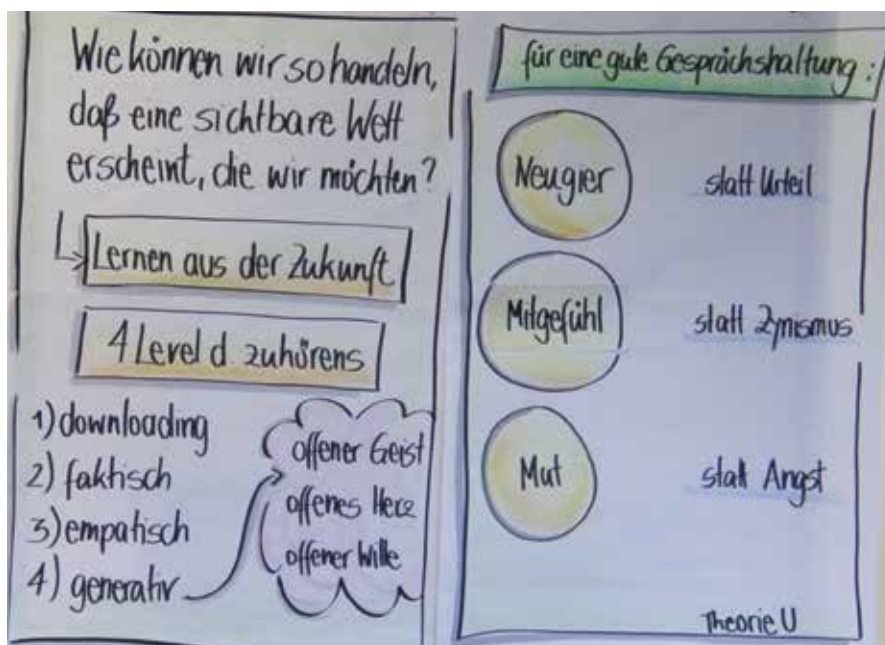 Wie können wir so handeln,
daß eine sichtbare Welt
erscheint, die wir möchten?
Lernen aus der Zukunft
4 Level d. zuhörens
1) downloading
2) faktisch
3) empatisch
4) generativ
offener Geist
offenes Herz
offener Wille
für eine gute Gesprächshaltung:
Neugier statt Urteil
Mitgefühl statt Zynismus
Mut statt Angst
Theorie U